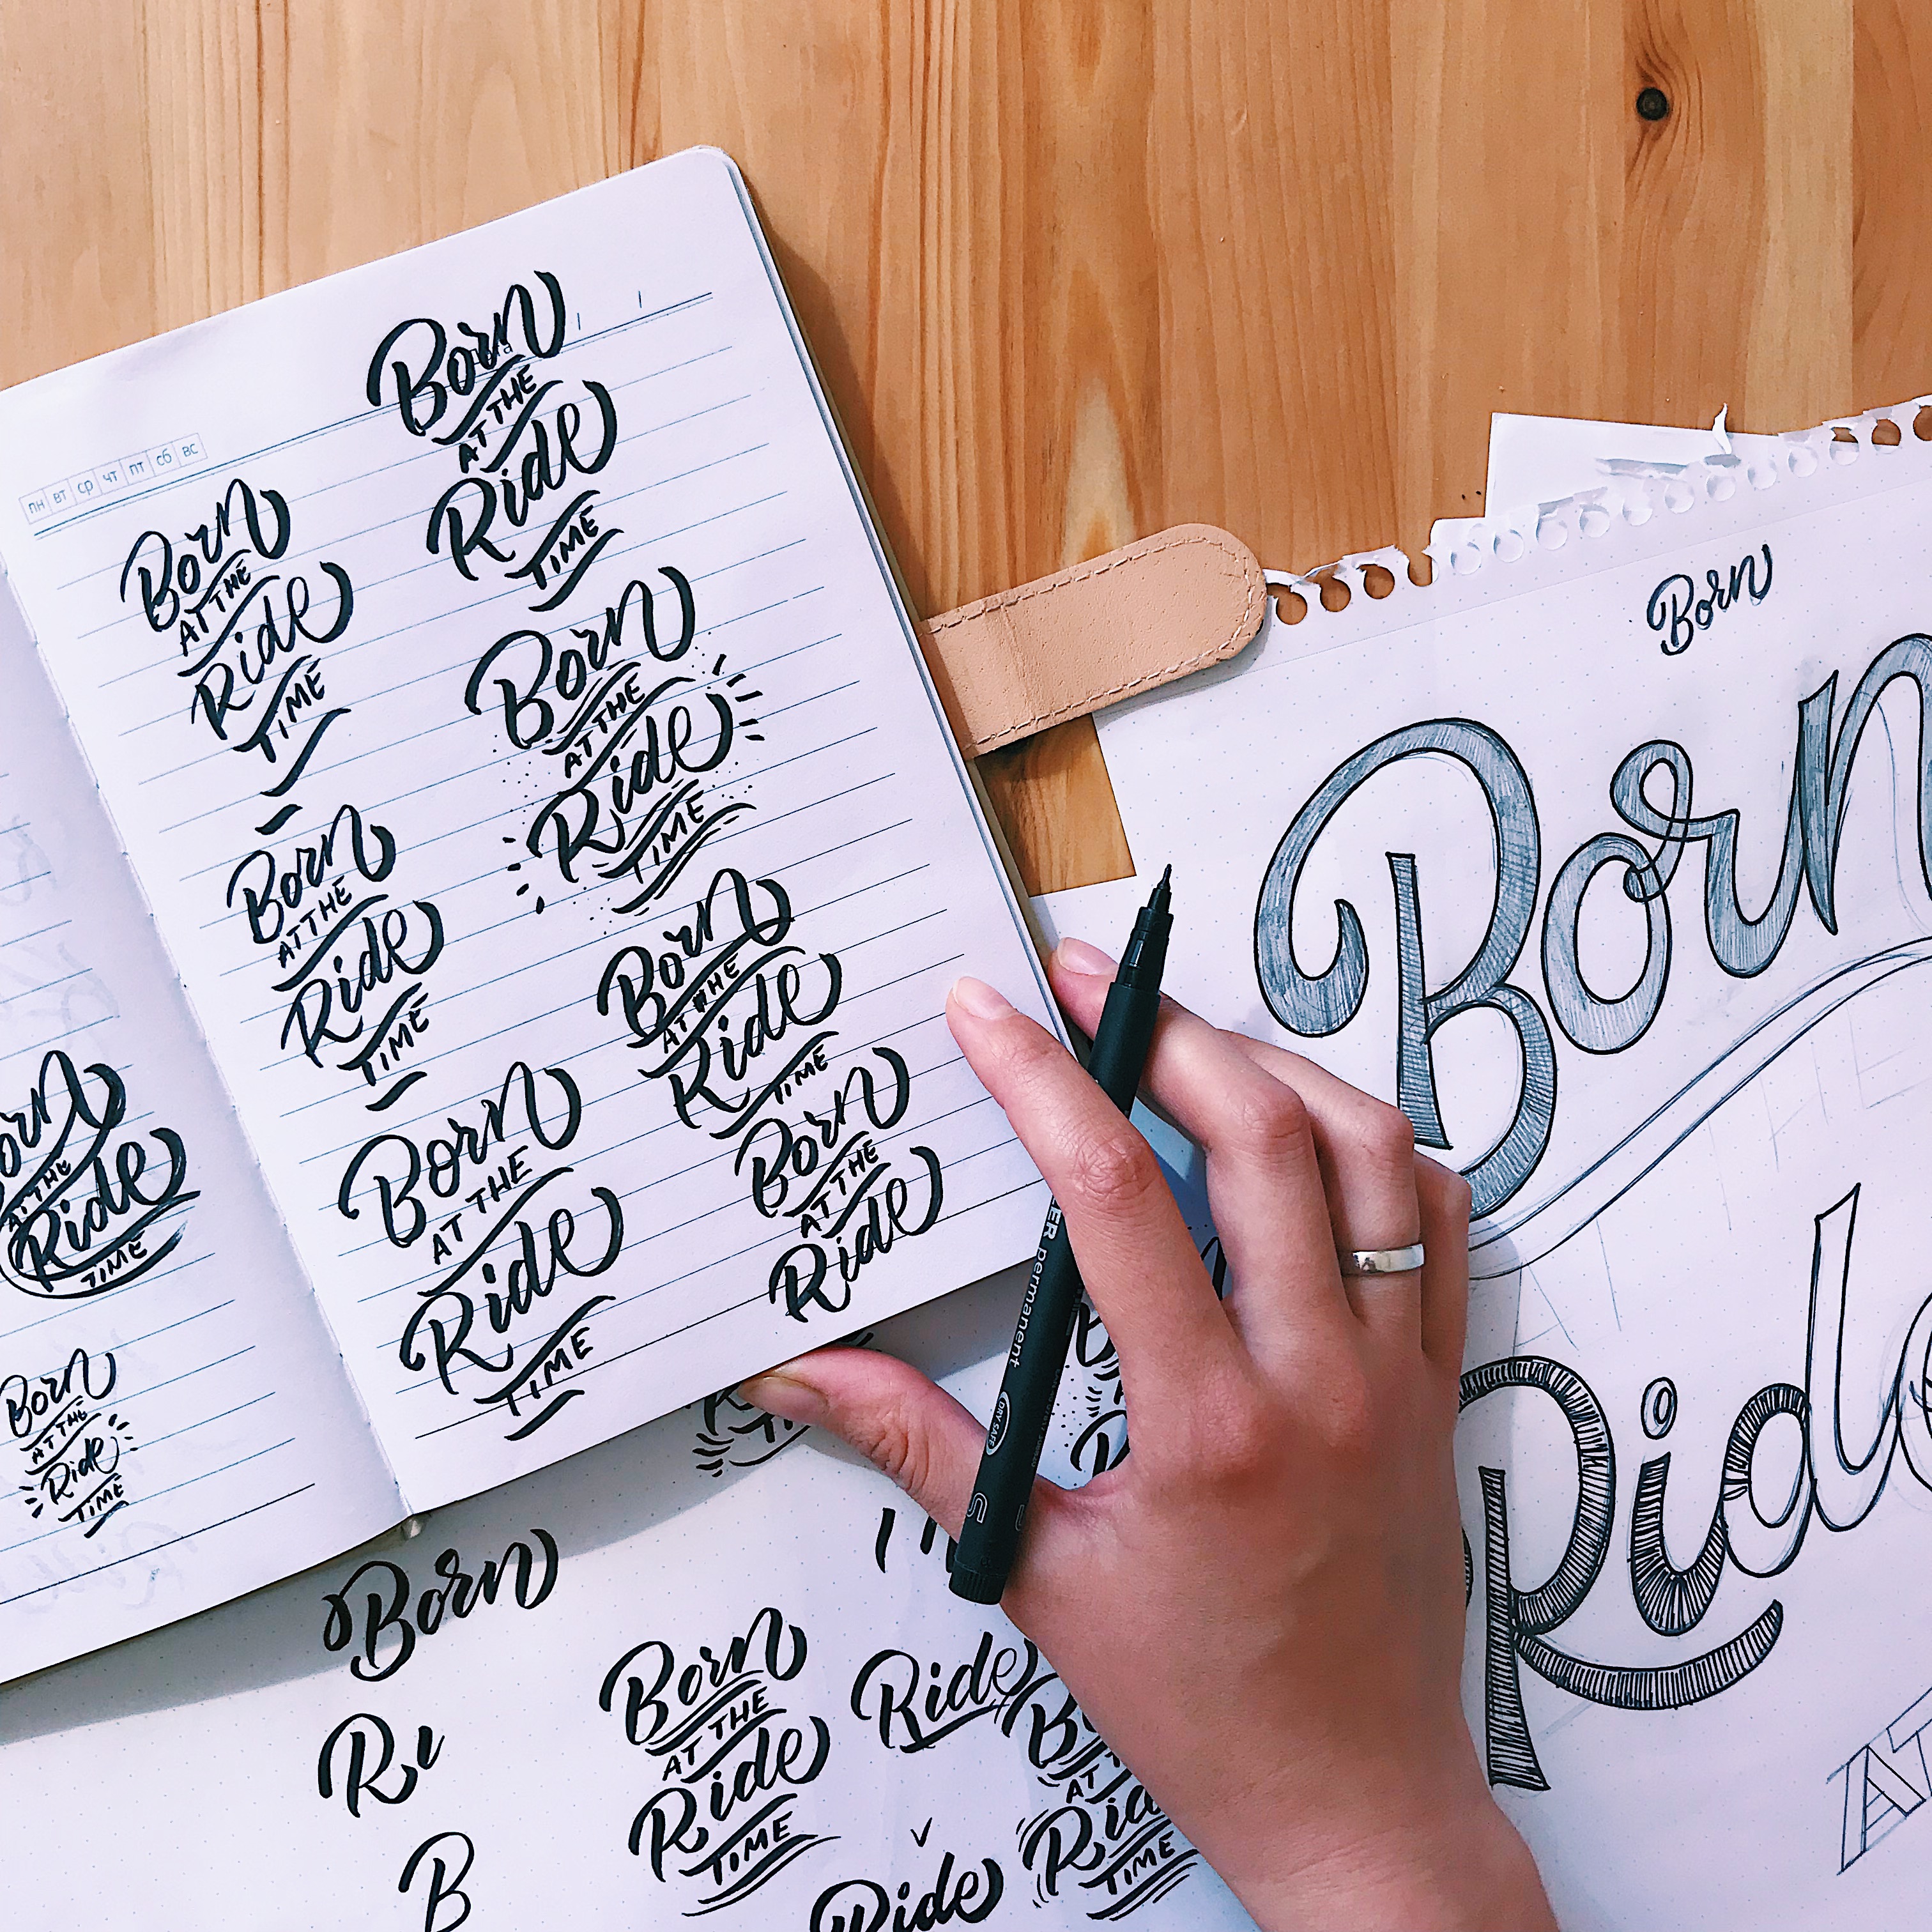 пн вт ср чт пт сб вс
Born
AT THE
Ride
TIME
Born
AT THE
Ride
TIME
Born
AT THE
Ride
TIME
Born
AT THE
Ride
TIME
Born
AT THE
Ride
TIME
Born
AT THE
Ride
TIME
Born
AT THE
Ride
AT THE
Ride
TIME
Born
AT THE
Ride
TIME
Born
Born
Ride
AT
permanent
DRY SAFE
Born
Ri
B
Born
AT THE
Ride
TIME
Ride
TIME
Ride